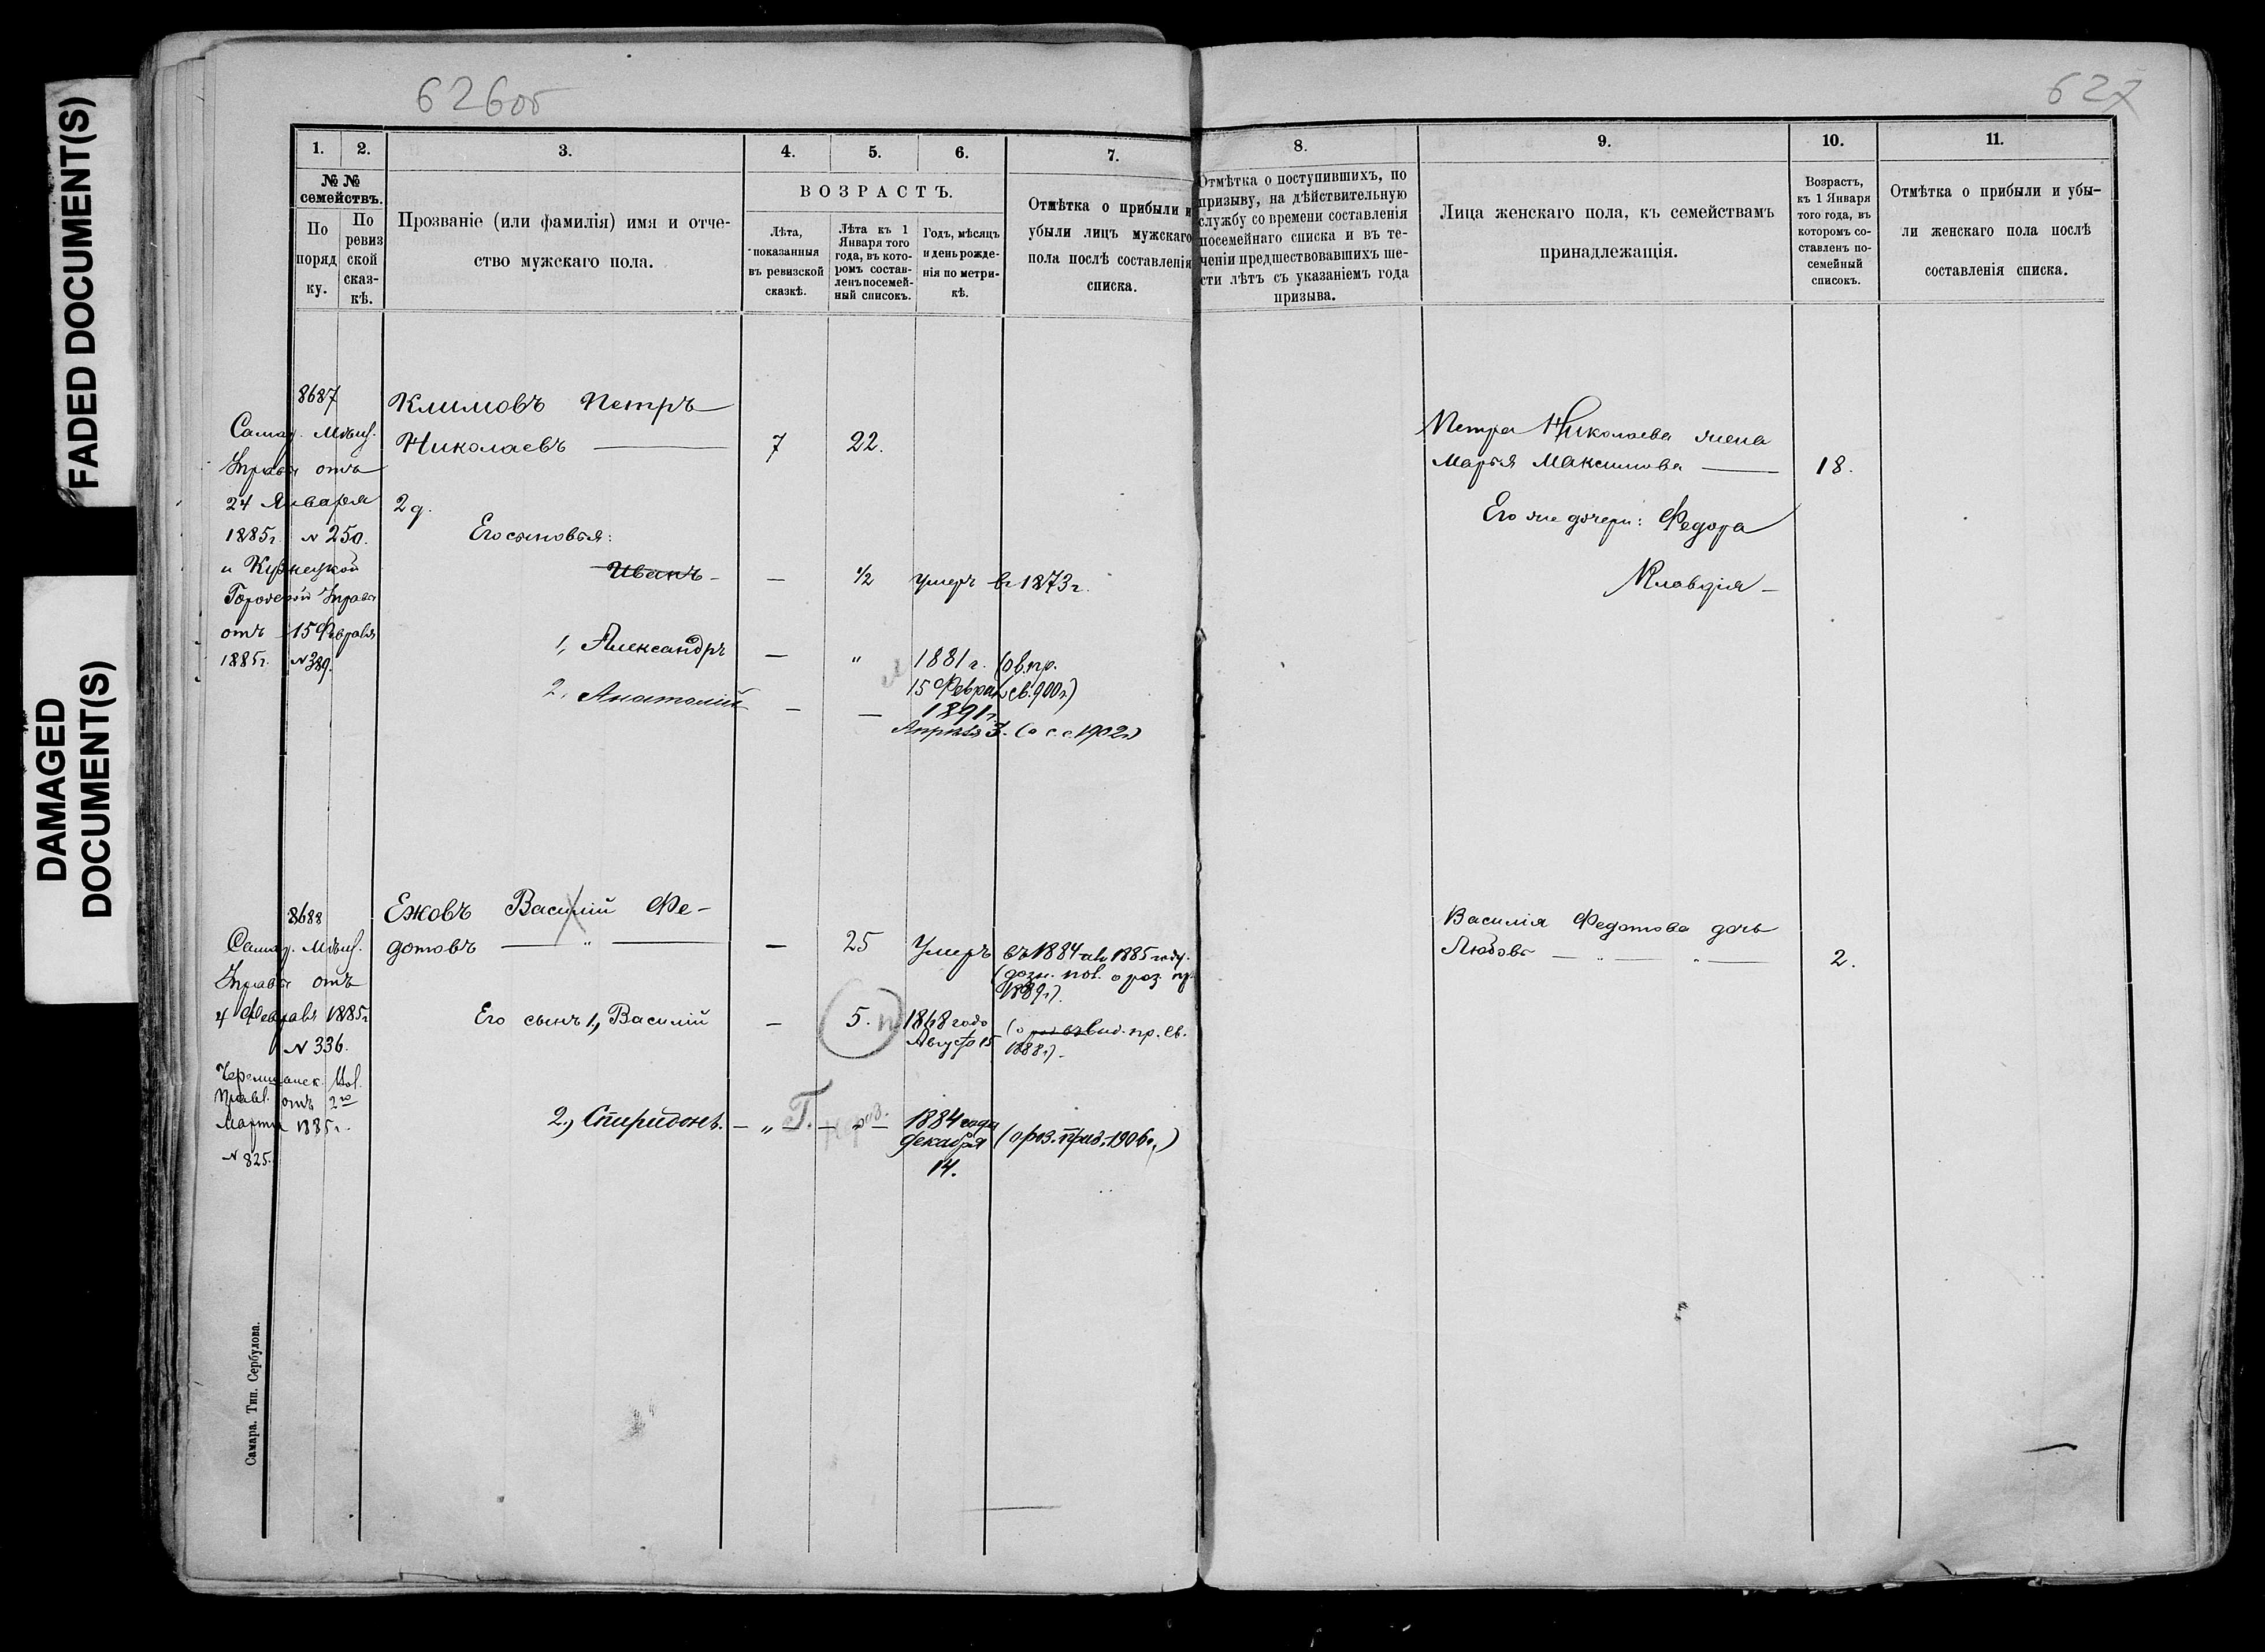 FADED DOCUMENT(S)
DAMAGED
DOCUMENT(S)
626об
1.
2.
3.
4.
5.
6.
7.
№ №
семействъ.
По
поряд
ку.
По
ревиз
ской
сказ-
кѣ.
Прозваніе (или фамилія) имя и отче-
ство мужскаго пола.
ВОЗРАСТЪ.
Лѣта,
показанныя
въ ревизской
сказкѣ.
Лѣта къ 1
Января того
года, въ кото-
ромъ состав-
ленъ посемей-
ный списокъ.
Годъ, мѣсяцъ
и день рожде-
нія по метри-
кѣ.
Отмѣтка о прибыли и
убыли лицъ мужскаго
пола послѣ составленія
списка.
8687
Самар. Мѣщ.
Управы отъ
24 Января
1885г. N 250.
и Кузнецкой
Городской Управы
отъ 15 Февраля
1885г. N 389.
Климовъ Петръ
Николаевъ
7
22.
2д.
Его сыновья:
Иванъ
1/2
умеръ въ 1873г.
1, Александръ
"
1881 г. (о в. пр.
15 Феврал св. 900г)
2, Анатолій
1891г.
Апрѣля 3. (о с. с. 1902г)
8688
Самар. Мѣщ.
Управы отъ
4 Февраля 1885г
N 336.
Черемшанск. Вол.
Правл. отъ 2го
Марта 1885г.
N 825.
Ежовъ Василій Фе-
дотовъ — " —
25
Умеръ въ 1884 или 1885 году.
(дозн. пол. о роз. пр.
1889г).
Его сынъ 1, Василій
5.
1868 года
Августа 15
(о вид. пр. св.
1888г).
2., Спиридонъ. — „ —
Т.
1884 года
декабря
14.
(о роз. приз. 1906г.)
Самара. Тип. Сербулова.
627
8.
9.
10.
11.
Отмѣтка о поступившихъ, по
призыву, на дѣйствительную
службу со времени составленія
посемейнаго списка и въ те-
ченіи предшествовавшихъ ше-
сти лѣтъ съ указаніемъ года
призыва.
Лица женскаго пола, къ семействамъ
принадлежащія.
Возрастъ,
къ 1 Января
того года, въ
которомъ со-
ставленъ по-
семейный
списокъ.
Отмѣтка о прибыли и убы-
ли женскаго пола послѣ
составленія списка.
Петра Николаева жена
Марья Максимова
18.
Его же дочери: Федора
Клавдія
Василія Федотова дочь
Любовь — " — " —
2.